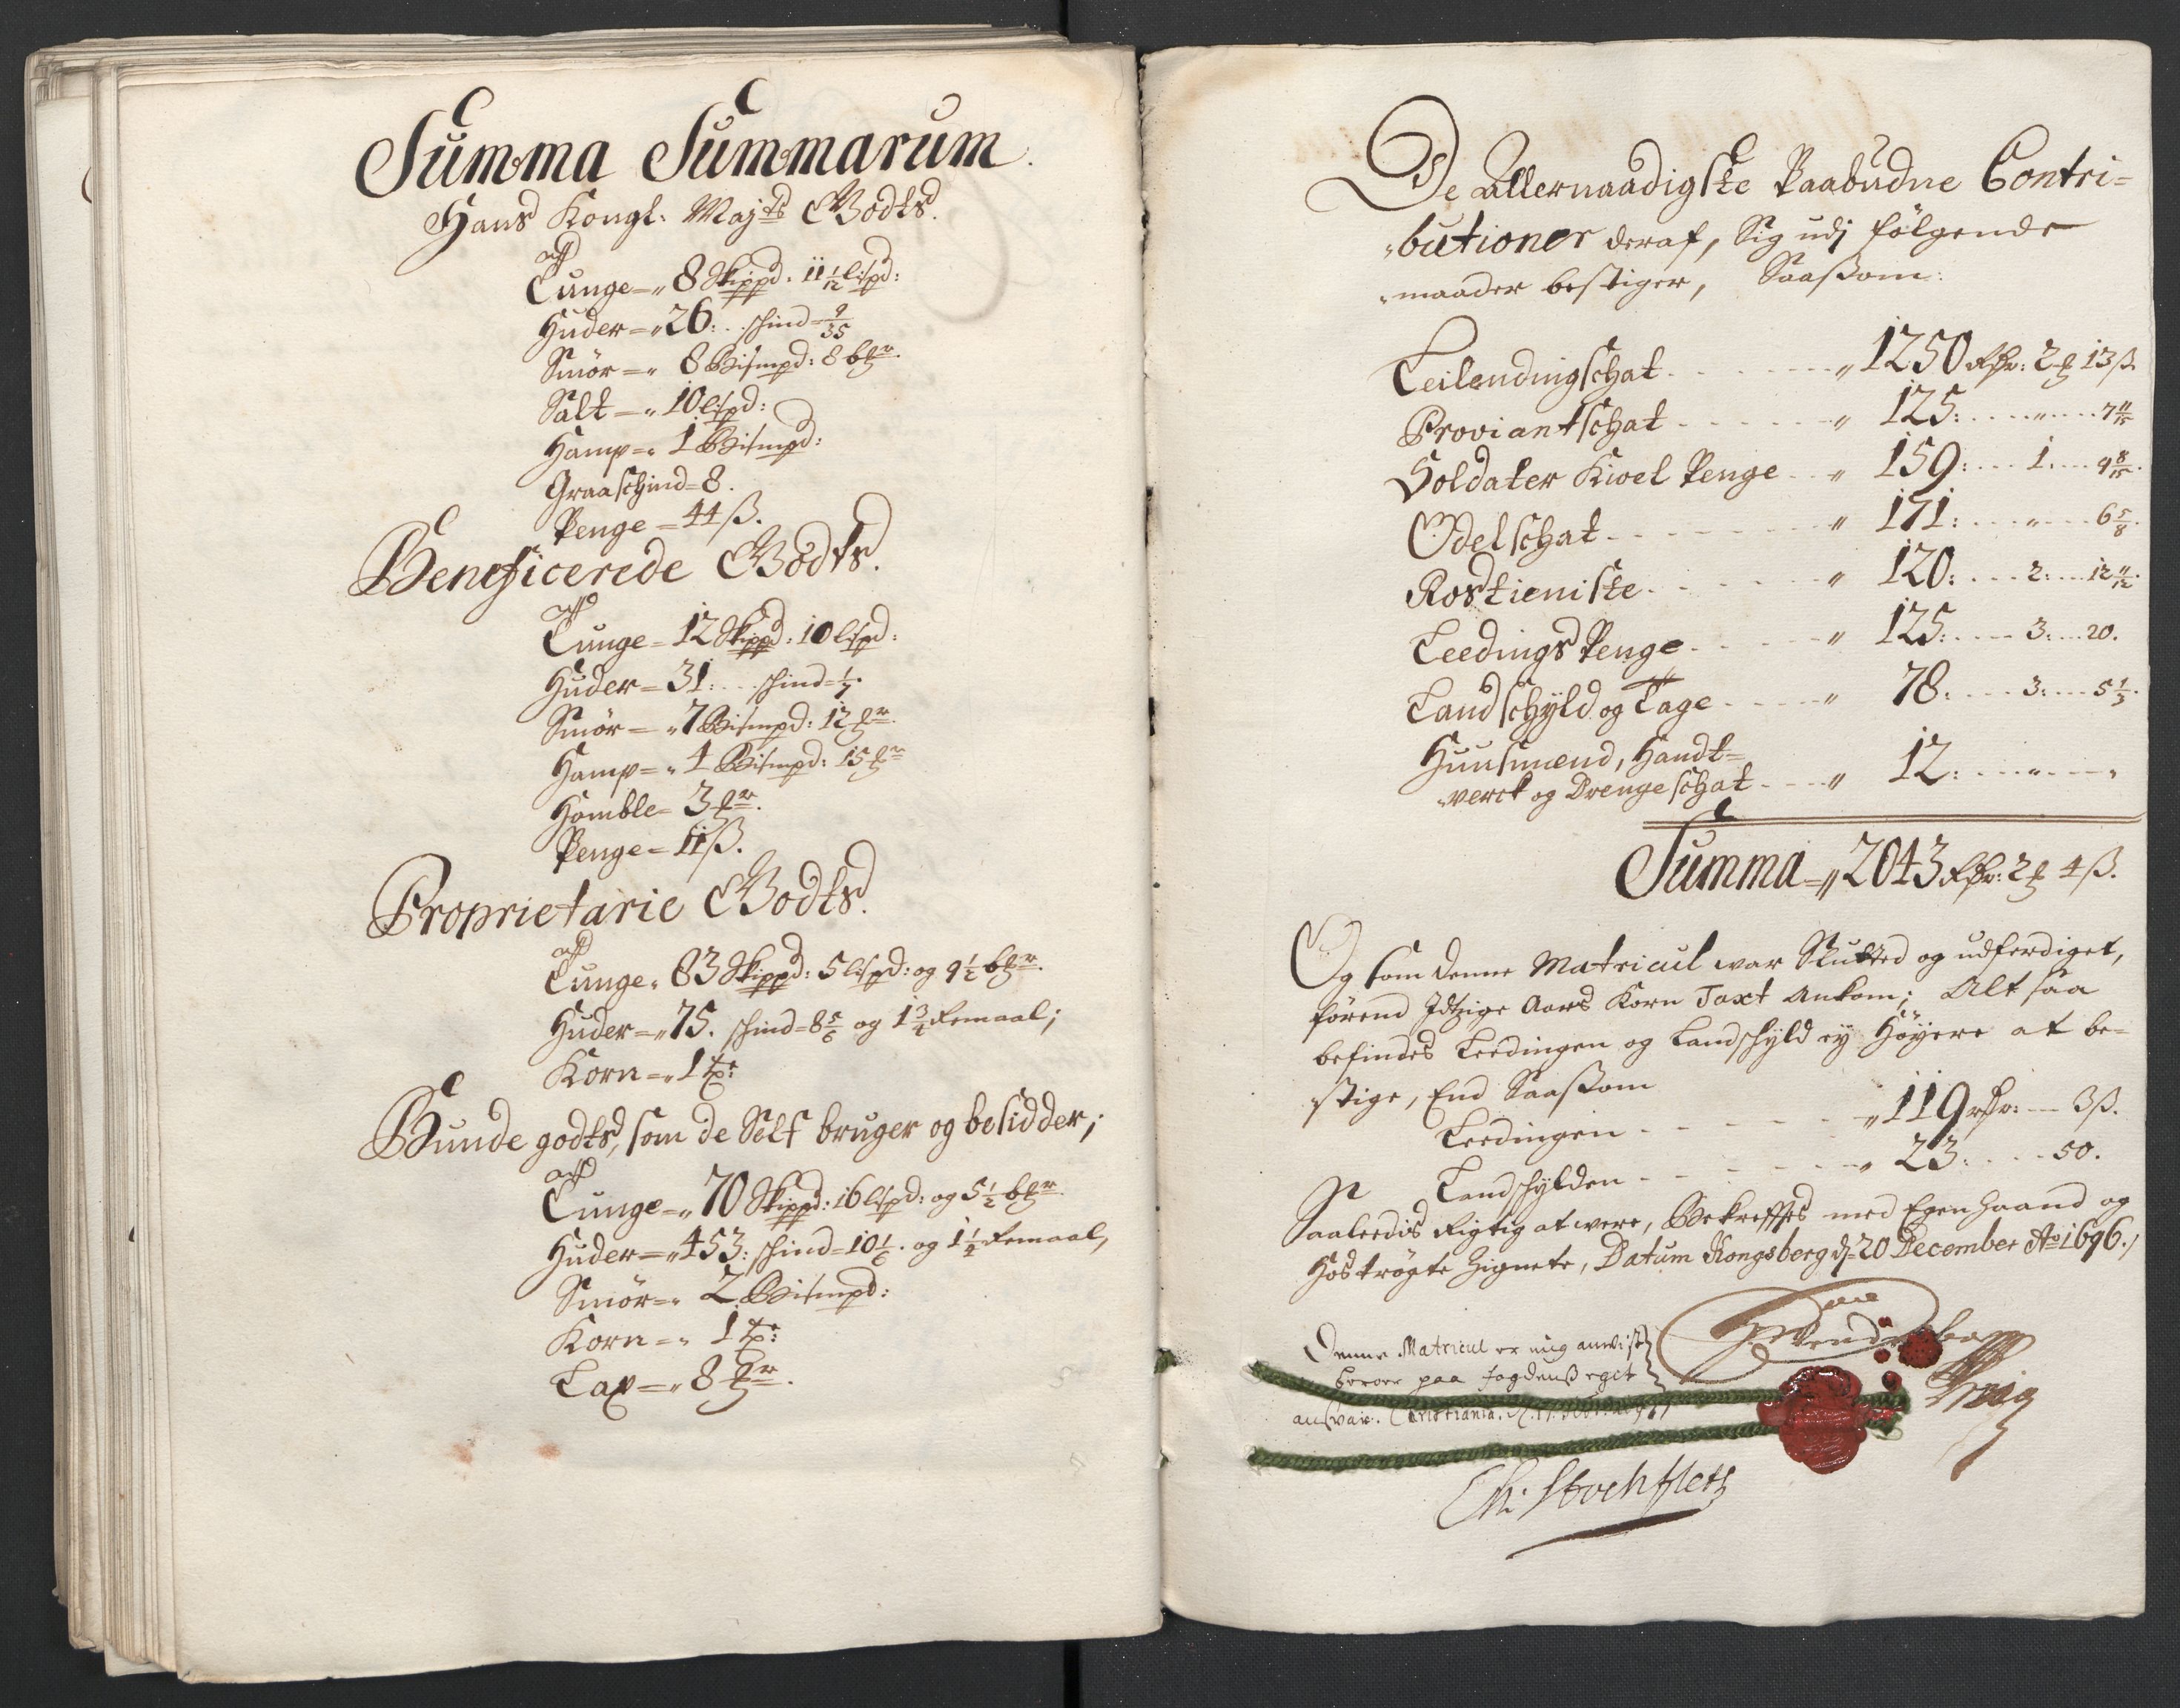 Summa Summarum.
Hans Kongl: Majts Godts.
aff
Tunge = „ 8 Skippd: 11 1/12 lispd:
Huder = „ 26: schind = 9/35
Smör = „ 8 Bismpd: 8 b℔r.
Salt = „ 10 lispd:
Hamp = „ 1 Bismpd:
Graaschind = 8.
Penge = 44 ß.
Beneficerede Godts.
aff
Tunge = 12 Skippd: 10 lispd:
Huder = 31: schind = 1/7.
Smör = „ 7 Bismpd: 12 ℔r.
Hamp = „ 1 Bismpd: 15 ℔r
Homble = 3 ℔r.
Penge = 11 ß.
Proprietarie Godts.
aff
Tunge „ 83 Skippd: 5 lispd: og 9 1/2 b℔r.
Huder = „ 75. schind = 8 5/6 og 1 3/4 femaal;
Korn = „ 1 tr:
Bunde godts, som de Self bruger og besidder;
aff
Tunge = „ 70 Skippd: 16 lispd: og 5 1/2 b℔r.
Huder = „ 453: schind = 10 1/6. og 1 1/2 femaal,
Smör = „ 2 Bismpd:
Korn = „ 1 tr:
Lax = „ 8 ℔r.
De Allernaadigste Paabudne Contri=
„butioner deraf, Sig udj følgende
„maader bestiger, Saasom:
Leilendingschat „ 1250 Rdr: 2 ℔ 13 ß.
Proviantschat „ 125: „ 7 11/15
Soldater Kioel Penge „ 159: 1. 9 8/15.
Odelschat „ 171: „ 6 5/8.
Rostieniste „ 120: 2: 12 11/12.
Leedings Penge „ 125: 3: 20.
Landschyld og Tage „ 78: 3: 5 1/3.
Huusmænd, Handt=
verck og Drengeschat „ 12: „ „
Summa = „ 2043 Rdr: 2 ℔ 4 ß.
Og som denne Matricul war Slutted og udferdiget,
førend Idtzige Aars Korn Taxt Ankom; Alt saa
befindes Leedingen og Landschyld ey Höyere at be=
stige, End Saasom
Leedingen „ 119 rdr: 3 ß.
Landschylden „ 23: 50.
Saaleedis Rigtig at were, Bekreffties med Egen Haand og
Hoströgte Zignete, Datum Kongsberg d: 20 December Ao 1696./
Denne Matricul er mig anvist
beroer paa fogdenß eget
ansvar. Christiania
Chr: Stockfleth